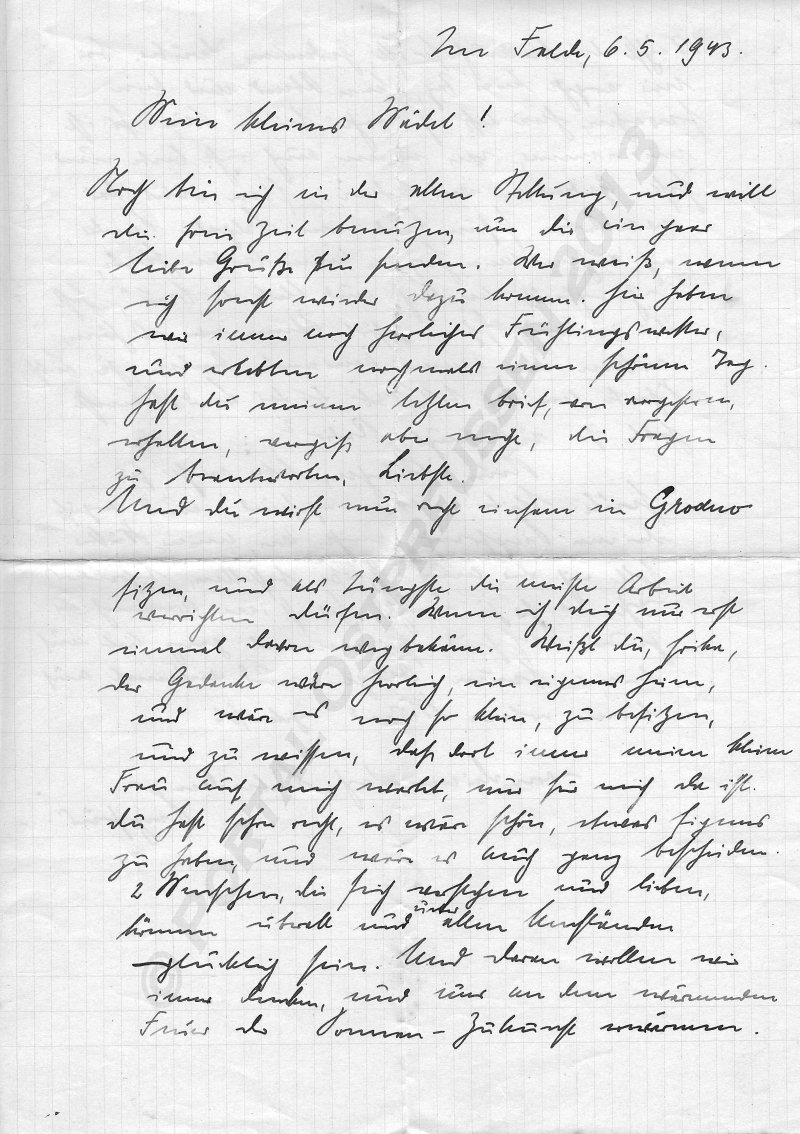 Im Felde, 6. 5. 1943.
Mein kleines Mädel!
Noch bin ich in der alten Stellung, und will
die freie Zeit benutzen, um dir ein paar
liebe Grüße zu senden. Wer weiß, wann
ich sonst wieder dazu komme. Hier haben
wir immer noch herrliches Frühlingswetter,
und erlebten nochmals einen schönen Tag.
Hast du meinen letzten Brief, von vorgestern,
erhalten, vergiß aber nicht, die Fragen
zu beantworten, Liebste.
Und du wirst nun recht einsam in Grodno
sitzen, und als Jüngste die meiste Arbeit
verrichten dürfen. Wenn ich dich nur erst
einmal davon wegbekäme. Weißt du,
der Gedanke wäre herrlich, ein eigenes Heim,
und wäre es noch so klein, zu besitzen,
und zu wissen, daß dort immer meine kleine
Frau auf mich wartet, nur für mich da ist.
Du hast schon recht, es wäre schön, etwas Eigenes
zu haben, und wäre es auch ganz bescheiden.
2 Menschen, die sich verstehen und lieben,
können überall und unter allen Umständen
glücklich sein. Und daran wollen wir
immer denken, und uns an dem wärmenden
Feuer der Sonnen-Zukunft erwärmen.
© PORTAL-OSTPREUSSEN 2013